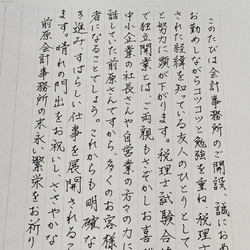 このたびは会計事務所のご開設、誠におめ
お勤めしながらコツコツと勉強を重ね、税理士
された経緯を知っている友人のひとりとして
と努力に頭が下がります。税理士試験合
で独立開業とは、ご両親もさぞかしお喜
中小企業の社長さんや自営業の方々の力に
話していた前原さんですから、多くのお客様
者になることでしょう。これからも明確な
き進み、すばらしい仕事を展開される
ます。晴れの門出をお祝いし、ささやかな
前原会計事務所の末永い繁栄をお祈り